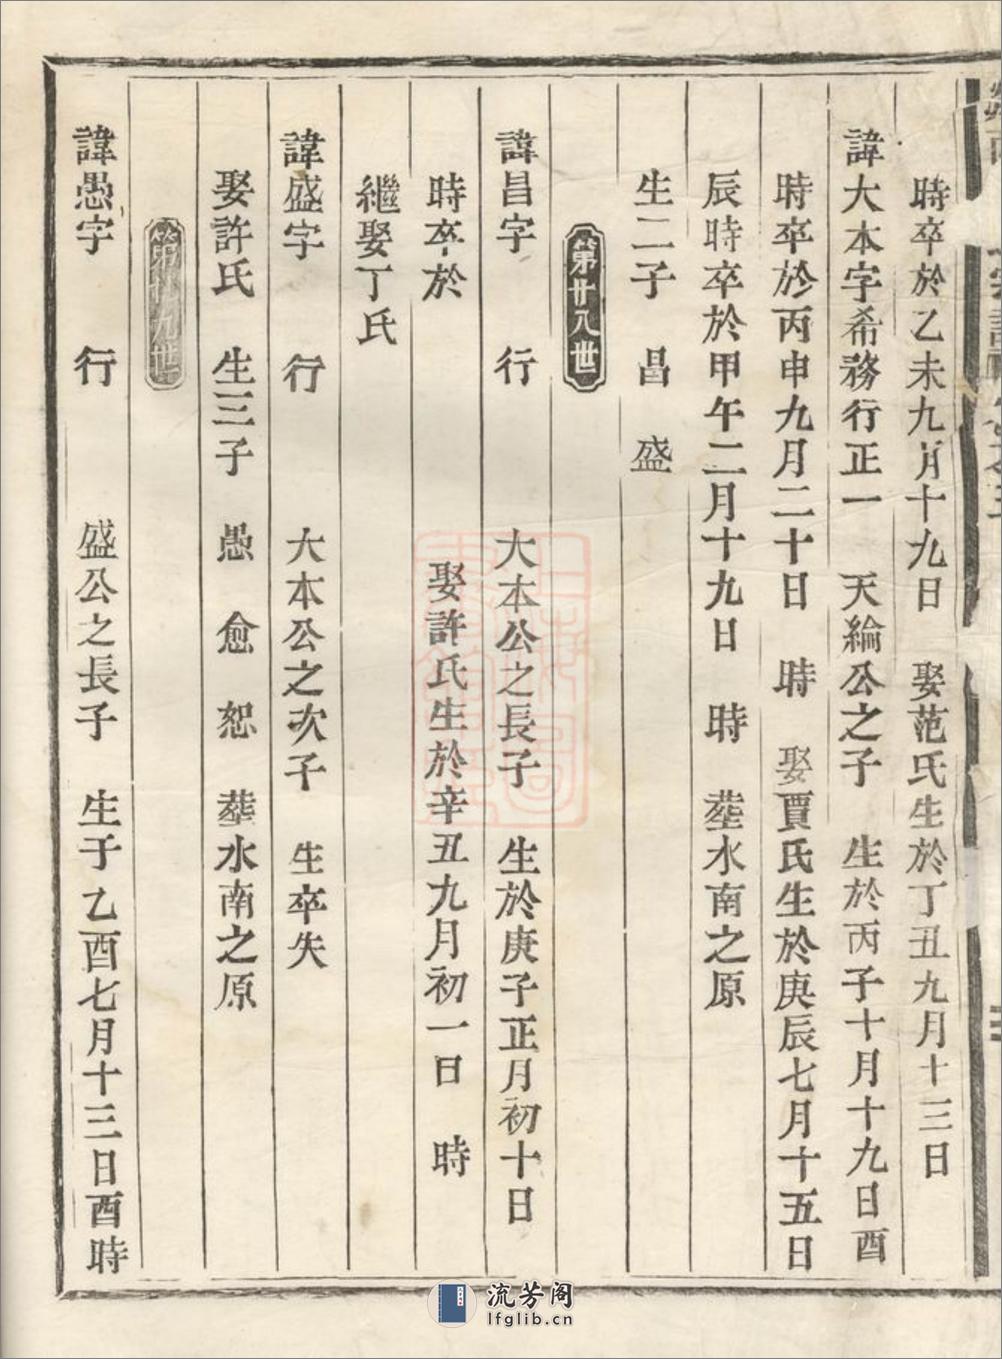 時卒於乙未九月十九日　娶范氏生於丁丑九月十三日
諱大本字希務行正一　天綸公之子　生於丙子十月十九日酉
時卒於丙申九月二十日　時　娶賈氏生於庚辰七月十五日
辰時卒於甲午二月十九日　時　塟水南之原
生二子　昌　盛
第廿八世
諱昌字　行　大本公之長子　生於庚子正月初十日
時卒於　娶許氏生於辛丑九月初一日　時
繼娶丁氏
諱盛字　行　大本公之次子　生卒失
娶許氏　生三子　愚　愈　恕　塟水南之原
第廿九世
諱愚字　行　盛公之長子　生于乙酉七月十三日酉時
流芳阁
lfglib.cn